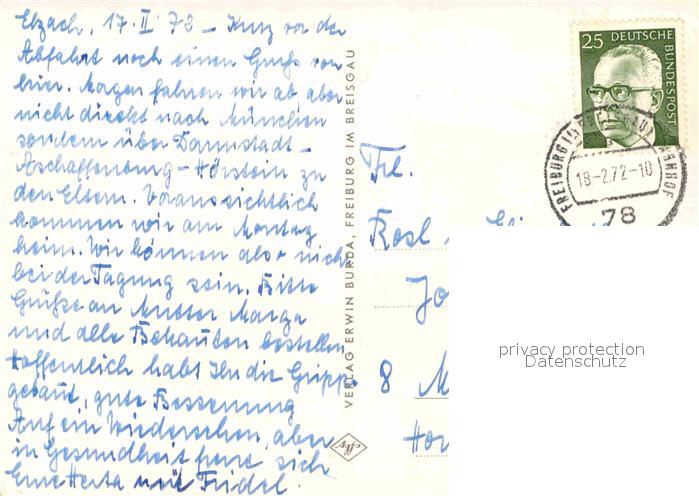 Elzach, 17. II 72 – Kurz vor der
Abfahrt noch einen Gruß von
hier. Morgen fahren wir ab aber
nicht direkt nach München
sondern über Darmstadt –
Aschaffenburg – Hörstein zu
den Eltern. Voraussichtlich
kommen wir am Montag
heim. Wir können also nicht
bei der Tagung sein. Bitte
Grüße an Mutter Marga
und alle Bekannten bestellen
Hoffentlich habt Ihr die Grippe
gebaut, gute Besserung
Auf ein Wiedersehen, aber
in Gesundheit freue sich
Eure Herta und Friedel.
VERLAG ERWIN BURDA, FREIBURG IM BREISGAU
25 DEUTSCHE BUNDESPOST
FREIBURG BAHNHOF
18-2.72-10
78
Frl.
Rosl
Jo
8 M
Hor
privacy protection
Datenschutz